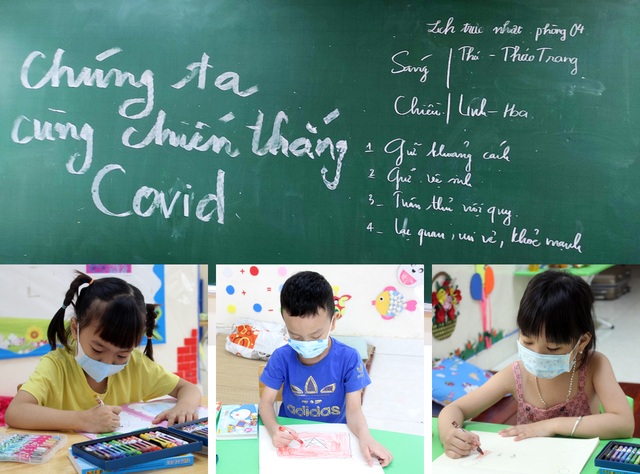 Chúng ta
cùng chiến thắng
Covid
Lịch trực nhật phòng 04
Sáng | Thá - Thảo Trang
Chiều | Linh - Hoa
1 Giữ khoảng cách
2 Giữ vệ sinh
3_ Tuân thủ nội quy
4_ Lạc quan, vui vẻ, khỏe mạnh
adidas